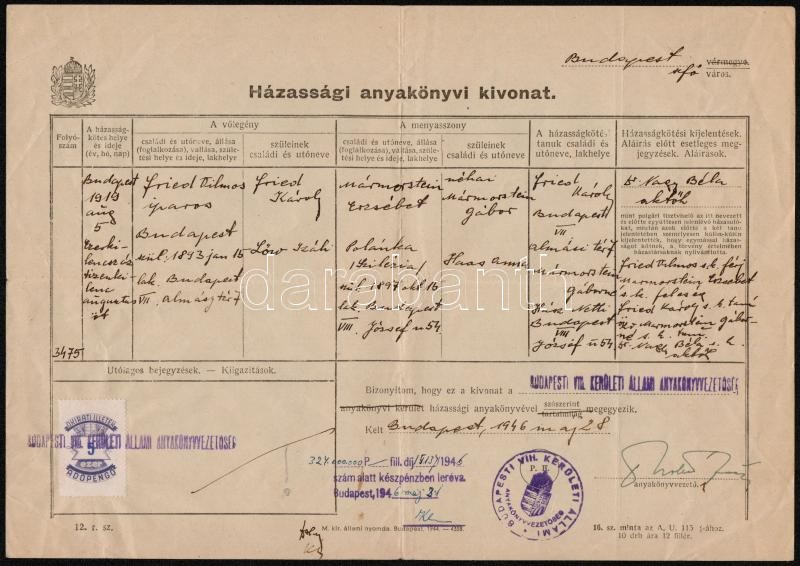 Budapest
sfő vármegye.
város.
Házassági anyakönyvi kivonat.
Folyó-
szám
A házasság-
kötés helye
és ideje
(év, hó, nap)
A vőlegény
családi és utóneve, állása
(foglalkozása), vallása, szüle-
tési helye és ideje, lakhelye
szüleinek
családi és utóneve
A menyasszony
családi és utóneve, állása
(foglalkozása), vallása, szüle-
tési helye és ideje, lakhelye
szüleinek
családi és utóneve
A házasságkötési
tanuk családi és
utóneve, lakhelye
Házasságkötési kijelentések.
Aláírás előtt esetleges meg-
jegyzések. Aláírások.
3475
Budapest
1919
aug
5
Ezerki-
lencszáz
tizenki-
lenc
augusztus
öt
Fried Vilmos
iparos
Budapest
szül. 1893 jan 15
lak. Budapest
VII. Almási tér 7
Fried
Károly
Löw Száli
Mármorstein
Erzsébet
Polanka
(Szilézia)
szül. 1897 okt 16
lak. Budapest
VIII. József u 54
néhai
Mármorstein
Gábor
Haas Anna
Fried Károly
Budapest
VII
Almási tér 7
Mármorstein
Gáborné
Netti
Budapest
VIII
József u 54
Dr Nagy Béla
aktöh
mint polgári tisztviselő az itt nevezett
és előtte együttesen jelenlévő házasulók-
kat, miután azok előtte a két tanú
jelenlétében személyesen külön-külön
kijelentették, hogy egymással házas-
ságot kötnek, a törvény értelmében
házastársaknak nyilvánította.
Fried Vilmos s.k. férj
Marmorstein Erzsébet
s. k. feleség
Fried Károly s.k. tanú
özv Marmorstein Gábor-
né s. k. tanú
Dr. Nagy Béla s. k.
aktöh
darabanth
Utólagos bejegyzések. — Kiigazítások.
OKIRATI ILLETÉK
5
ezer
ADÓPENGŐ
BUDAPESTI VIII. KERÜLETI ÁLLAMI ANYAKÖNYVVEZETŐSÉG
Bizonyítom, hogy ez a kivonat a BUDAPESTI VIII. KERÜLETI ÁLLAMI ANYAKÖNYVVEZETŐSÉG
anyakönyvi kerület házassági anyakönyvével szószerint
tartalmilag megegyezik.
Kelt Budapest, 1946 maj 28
324.000.000 P fill. díj 1946
szám alatt készpénzben leróva.
Budapest, 1946 maj 21
P. H.
BUDAPESTI VIII. KERÜLETI ÁLLAMI
ANYAKÖNYVVEZETŐSÉG
anyakönyvvezető.
12. r. sz.
M. kir. állami nyomda. Budapest, 1944. — 4358.
16. sz. minta az A. U. 115 §-ához.
10 drb ára 12 fillér.